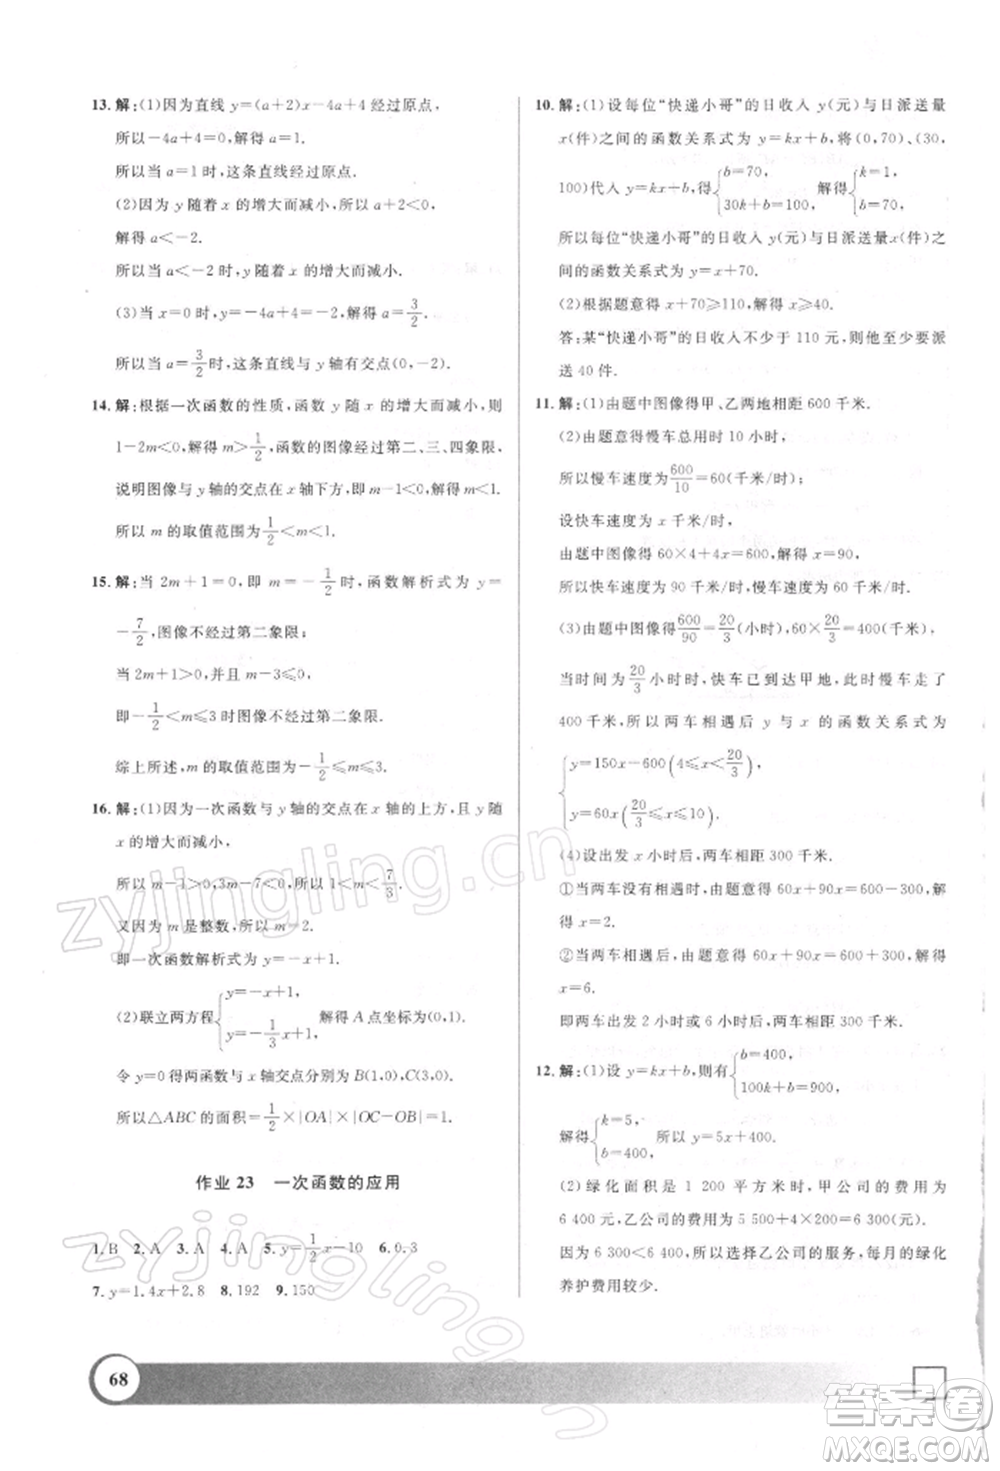 13. 解:(1)因为直线 y=(a+2)x-4a+4 经过原点,
所以-4a+4=0,解得 a=1.
所以当 a=1 时,这条直线经过原点.
(2)因为 y 随着 x 的增大而减小,所以 a+2<0,
解得 a<-2.
所以当 a<-2 时,y 随着 x 的增大而减小.
(3)当 x=0 时,y=-4a+4=-2,解得 a=3/2.
所以当 a=3/2 时,这条直线与 y 轴有交点(0,-2).
14. 解:根据一次函数的性质,函数 y 随 x 的增大而减小,则
1-2m<0,解得 m>1/2,函数的图像经过第二、三、四象限,
说明图像与 y 轴的交点在 x 轴下方,即 m-1<0,解得 m<1.
所以 m 的取值范围为 1/2<m<1.
15. 解:当 2m+1=0,即 m=-1/2 时,函数解析式为 y=
-7/2,图像不经过第二象限;
当 2m+1>0,并且 m-3≤0,
即-1/2<m≤3 时图像不经过第二象限.
综上所述,m 的取值范围为-1/2≤m≤3.
16. 解:(1)因为一次函数与 y 轴的交点在 x 轴的上方,且 y 随
x 的增大而减小,
所以 m-1>0,3m-7<0,所以 1<m<7/3.
又因为 m 是整数,所以 m=2.
即一次函数解析式为 y=-x+1.
(2)联立两方程{y=-x+1, y=-1/3x+1, 解得 A 点坐标为(0,1).
令 y=0 得两函数与 x 轴交点分别为 B(1,0),C(3,0).
所以△ABC 的面积=1/2×|OA|×|OC-OB|=1.
作业 23 一次函数的应用
1. B 2. A 3. A 4. A 5. y=1/2x-10 6. 0.3
7. y=1.4x+2.8 8. 192 9. 150
10. 解:(1)设每位“快递小哥”的日收入 y(元)与日派送量
x(件)之间的函数关系式为 y=kx+b,将(0,70)、(30,
100)代入 y=kx+b,得{b=70, 30k+b=100, 解得{k=1, b=70,
所以每位“快递小哥”的日收入 y(元)与日派送量 x(件)之
间的函数关系式为 y=x+70.
(2)根据题意得 x+70≥110,解得 x≥40.
答:某“快递小哥”的日收入不少于 110 元,则他至少要派
送 40 件.
11. 解:(1)由题中图像得甲、乙两地相距 600 千米.
(2)由题意得慢车总用时 10 小时,
所以慢车速度为 600/10=60(千米/时),
设快车速度为 x 千米/时,
由题中图像得 60×4+4x=600,解得 x=90,
所以快车速度为 90 千米/时,慢车速度为 60 千米/时.
(3)由题中图像得 600/90=20/3(小时),60×20/3=400(千米),
当时间为 20/3 小时时,快车已到达甲地,此时慢车走了
400 千米,所以两车相遇后 y 与 x 的函数关系式为
{y=150x-600(4≤x<20/3),
y=60x(20/3≤x≤10).
(4)设出发 x 小时后,两车相距 300 千米.
①当两车没有相遇时,由题意得 60x+90x=600-300,解
得 x=2.
②当两车相遇后,由题意得 60x+90x=600+300,解得
x=6.
即两车出发 2 小时或 6 小时时,两车相距 300 千米.
12. 解:(1)设 y=kx+b,则有{b=400, 100k+b=900,
解得{k=5, b=400, 所以 y=5x+400.
(2)绿化面积是 1 200 平方米时,甲公司的费用为
6 400 元,乙公司的费用为 5 500+4×200=6 300(元),
因为 6 300<6 400,所以选择乙公司的服务,每月的绿化
养护费用较少.
68
zyjingling.cn
zyjingling
答案圈
MXQE.COM